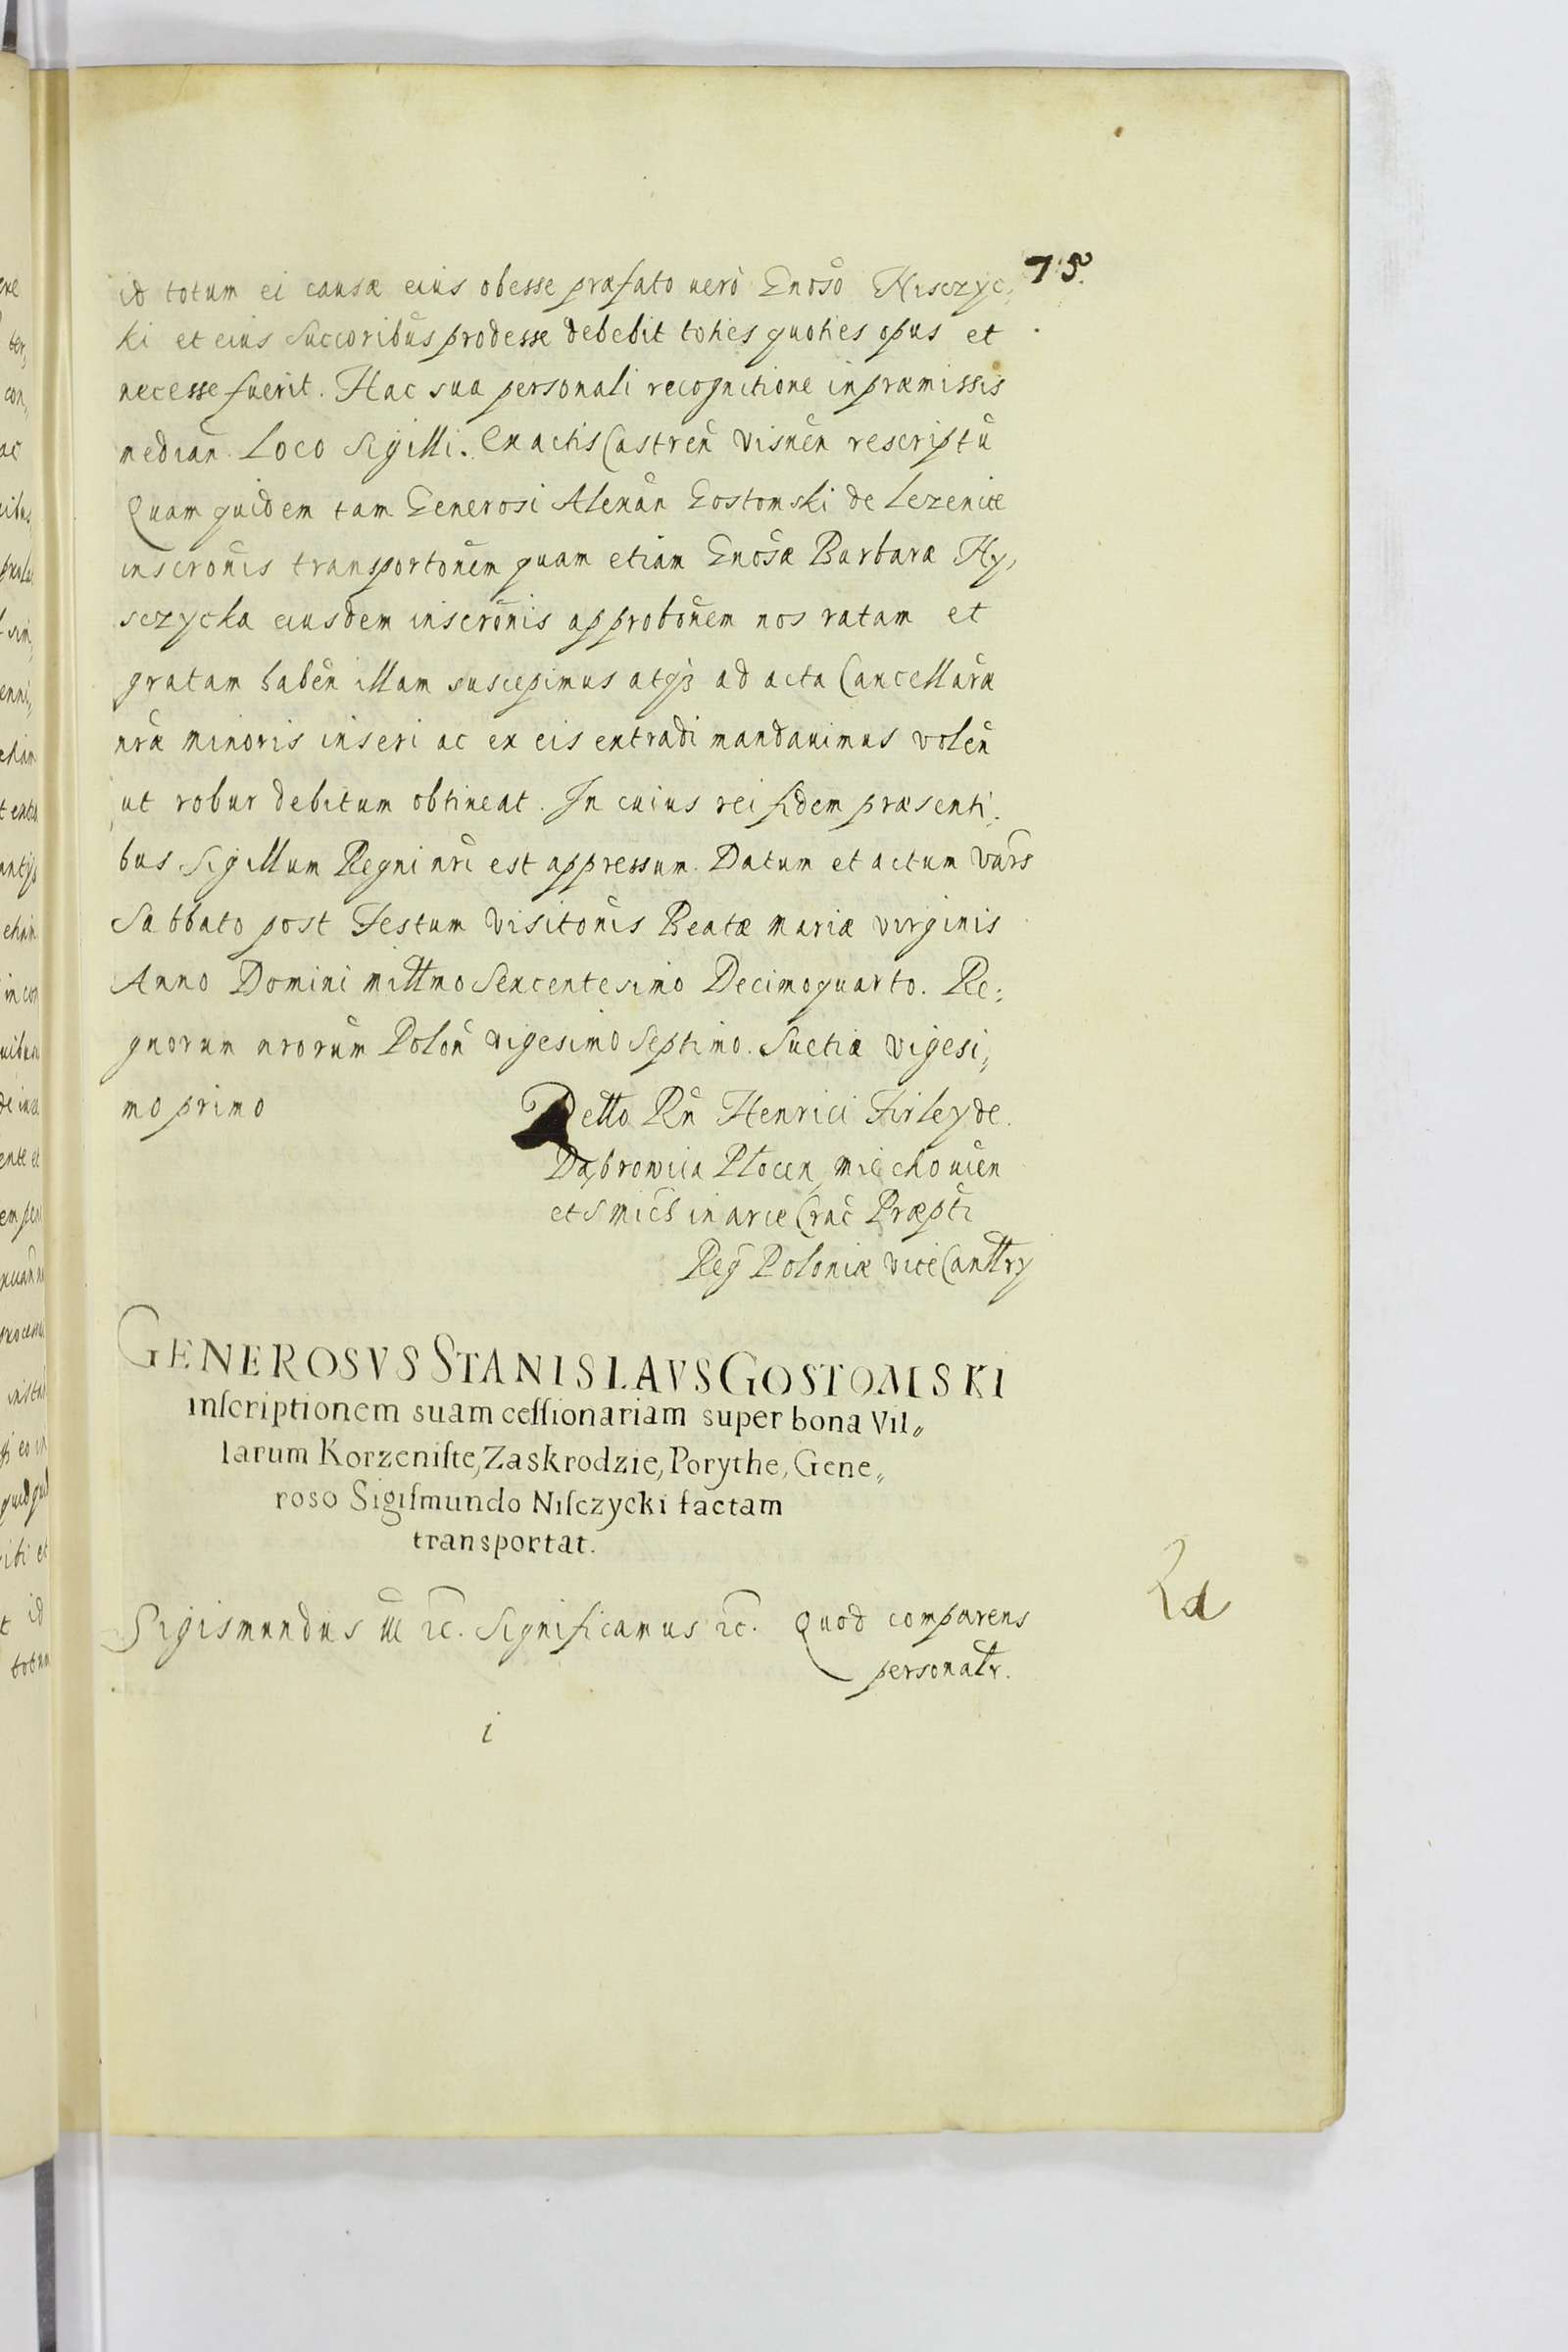 75.
id totum ei causæ eius obesse præfato uerò Gnoso Nisczyc,
ki et eius Succoribus prodesse debebit toties quoties opus et
necesse fuerit. Hac sua personali recognitione in præmissis
median. Loco Sigilli. Ex actis Castren Visnen rescriptu
Quam quidem tam Generosi Alexan Gostomski de Lezenice
inscronis transportonem quam etiam Gnosæ Barbaræ Hy,
sczycka eiusdem inscronis approbonem nos ratam et
gratam haben illam suscepimus atq3 ad acta Cancellaræ
nræ minoris inseri ac ex eis extradi mandauimus volen
ut robur debitum obtineat. In cuius rei fidem præsenti,
bus Sigillum Regni nri est appressum. Datum et actum Vars
Sabbato post Festum Visitonis Beatæ Mariæ Virginis
Anno Domini millmo Sexcentesimo Decimoquarto. Re,
gnorum nrorum Polon vigesimo Septimo. Suetiæ vigesi,
mo primo
Retto Rn Henrici Firley de
Dąbrowica Plocen, Miechouien
et S Mich in arce Crac Præpti
Reg Poloniæ ViceCanllry
GENEROSVS STANISLAVS GOSTOMSKI
inſcriptionem suam ceſſionariam super bona Vil„
larum Korzeniſte, Zaskrodzie, Porythe, Gene„
roso Sigiſmundo Niſczycki factam
transportat.
Sigismundus III ꝛc. Significamus ꝛc. Quod comparens
personalr.
i